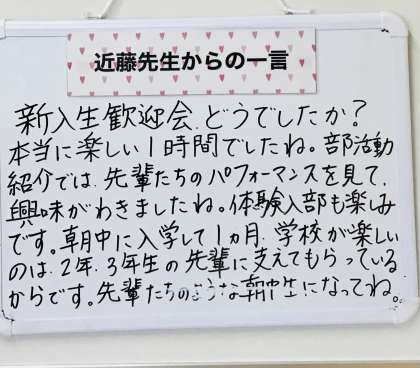 近藤先生からの一言
新入生歓迎会、どうでしたか?
本当に楽しい1時間でしたね。部活動
紹介では、先輩たちのパフォーマンスを見て、
興味がわきましたね。体験入部も楽しみ
です。朝中に入学して1ヵ月、学校が楽しい
のは、2年、3年生の先輩に支えてもらっている
からです。先輩たちのような朝中生になってね。